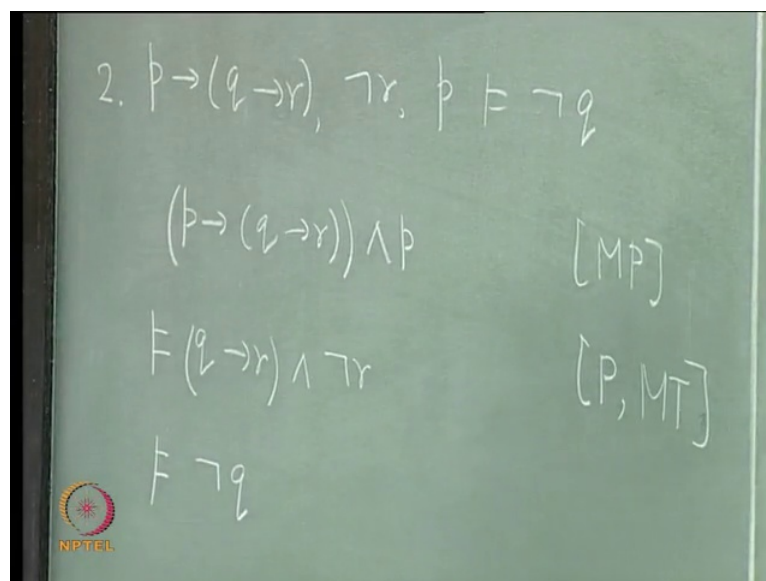 2. p→(q→r), ¬r, p ⊨ ¬q
(p→(q→r))∧p [MP]
⊨(q→r)∧¬r [P, MT]
⊨ ¬q
NPTEL